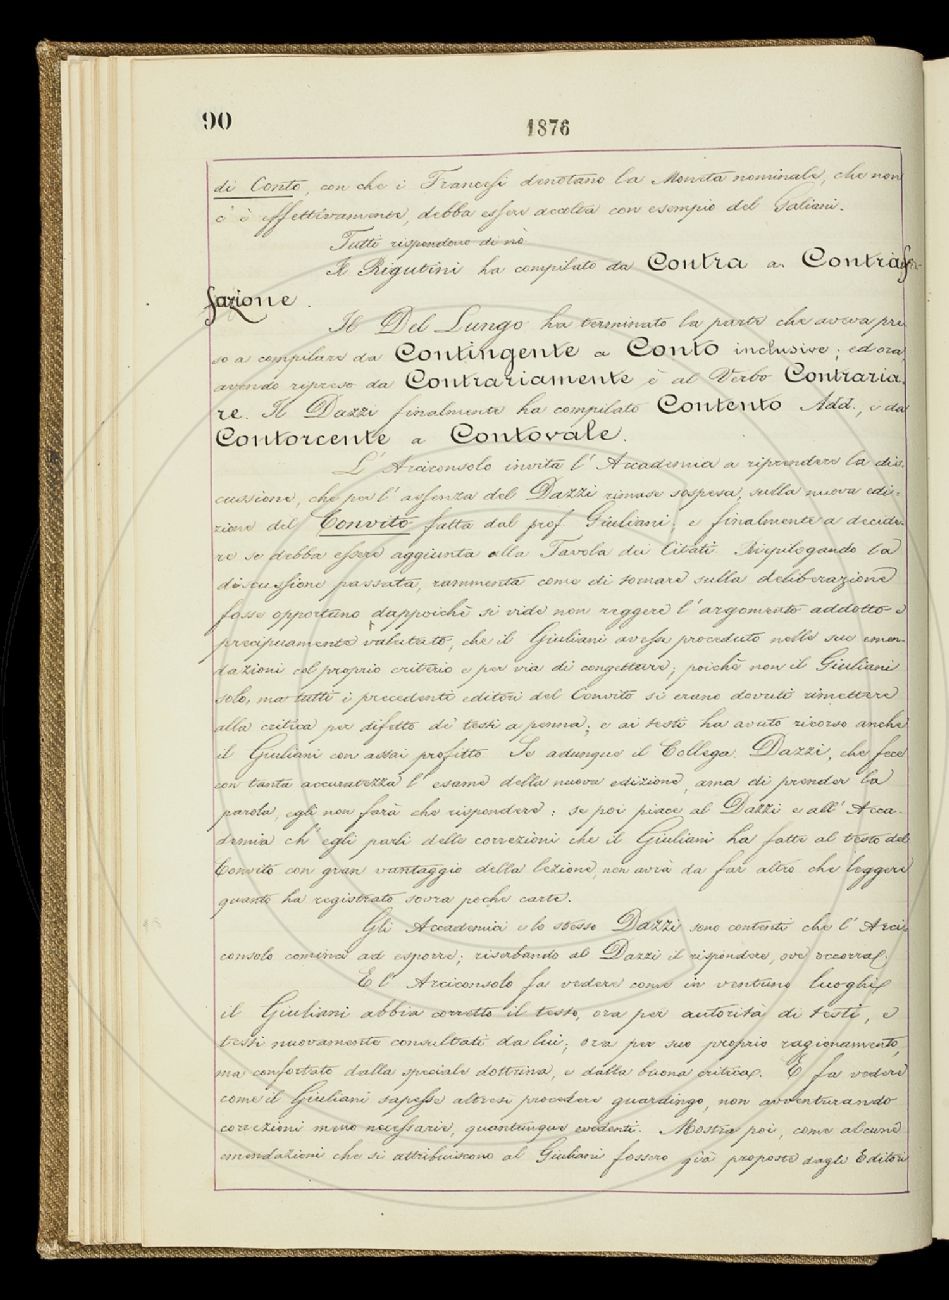 90
1876
di Conto, con che i Francesi denotano la Moneta nominale, che non
c'è effettivamente, debba essere accolta con esempio del Galiani.
Tutti rispondono di nò
Il Rigutini ha compilato da Contra a Contraf-
fazione.
Il Del Lungo ha terminato la parte che aveva pre
so a compilare da Contingente a Conto inclusive; ed ora
avendo ripreso da Contrariamente è al Verbo Contraria
re. Il Dazzi finalmente ha compilato Contento Add., e da
Contorcente a Contovale.
L'Arciconsolo invita l'Accademia a riprendere la dis-
cussione, che per l'assenza del Dazzi rimase sospesa, sulla nuova edi-
zione del Convito fatta dal prof. Giuliani; e finalmente a decide-
re se debba essere aggiunta alla Tavola dei Citati. Riepilogando la
discussione passata, rammenta come di tornare sulla deliberazione
fosse opportuno dappoichè si vide non reggere l'argomento addotto e
precipuamente valutato, che il Giuliani avesse proceduto nelle sue emen-
dazioni col proprio criterio e per via di congetture; poichè non il Giuliani
solo, ma tutti i precedenti editori del Convito si erano dovuti rimettere
alla critica per difetto di testi a penna; e ai testi ha avuto ricorso anche
il Giuliani con assai profitto. Se adunque il Collega Dazzi, che fece
con tanta accuratezza l'esame della nuova edizione, ama di prender la
parola, egli non farà che rispondere: se poi piace al Dazzi e all'Acca-
demia ch'egli parli delle correzioni che il Giuliani ha fatte al testo del
Convito con gran vantaggio della lezione, non avrà da far altro che leggere
quanto ha registrato sovra poche carte.
Gli Accademici e lo stesso Dazzi sono contenti che l'Arci
consolo cominci ad esporre; riserbando al Dazzi il rispondere, ove occorra.
E l'Arciconsolo fa vedere come in ventuno luoghi
il Giuliani abbia corretto il testo, ora per autorità di testi, e
testi nuovamente consultati da lui; ora per suo proprio ragionamento,
ma confortato dalla speciale dottrina, e dalla buona critica. E fa vedere
come il Giuliani sapesse altresì procedere guardingo, non avventurando
correzioni meno necessarie, quantunque evidenti. Mostra poi, come alcune
emendazioni che si attribuiscono al Giuliani fossero già proposte dagli Editori